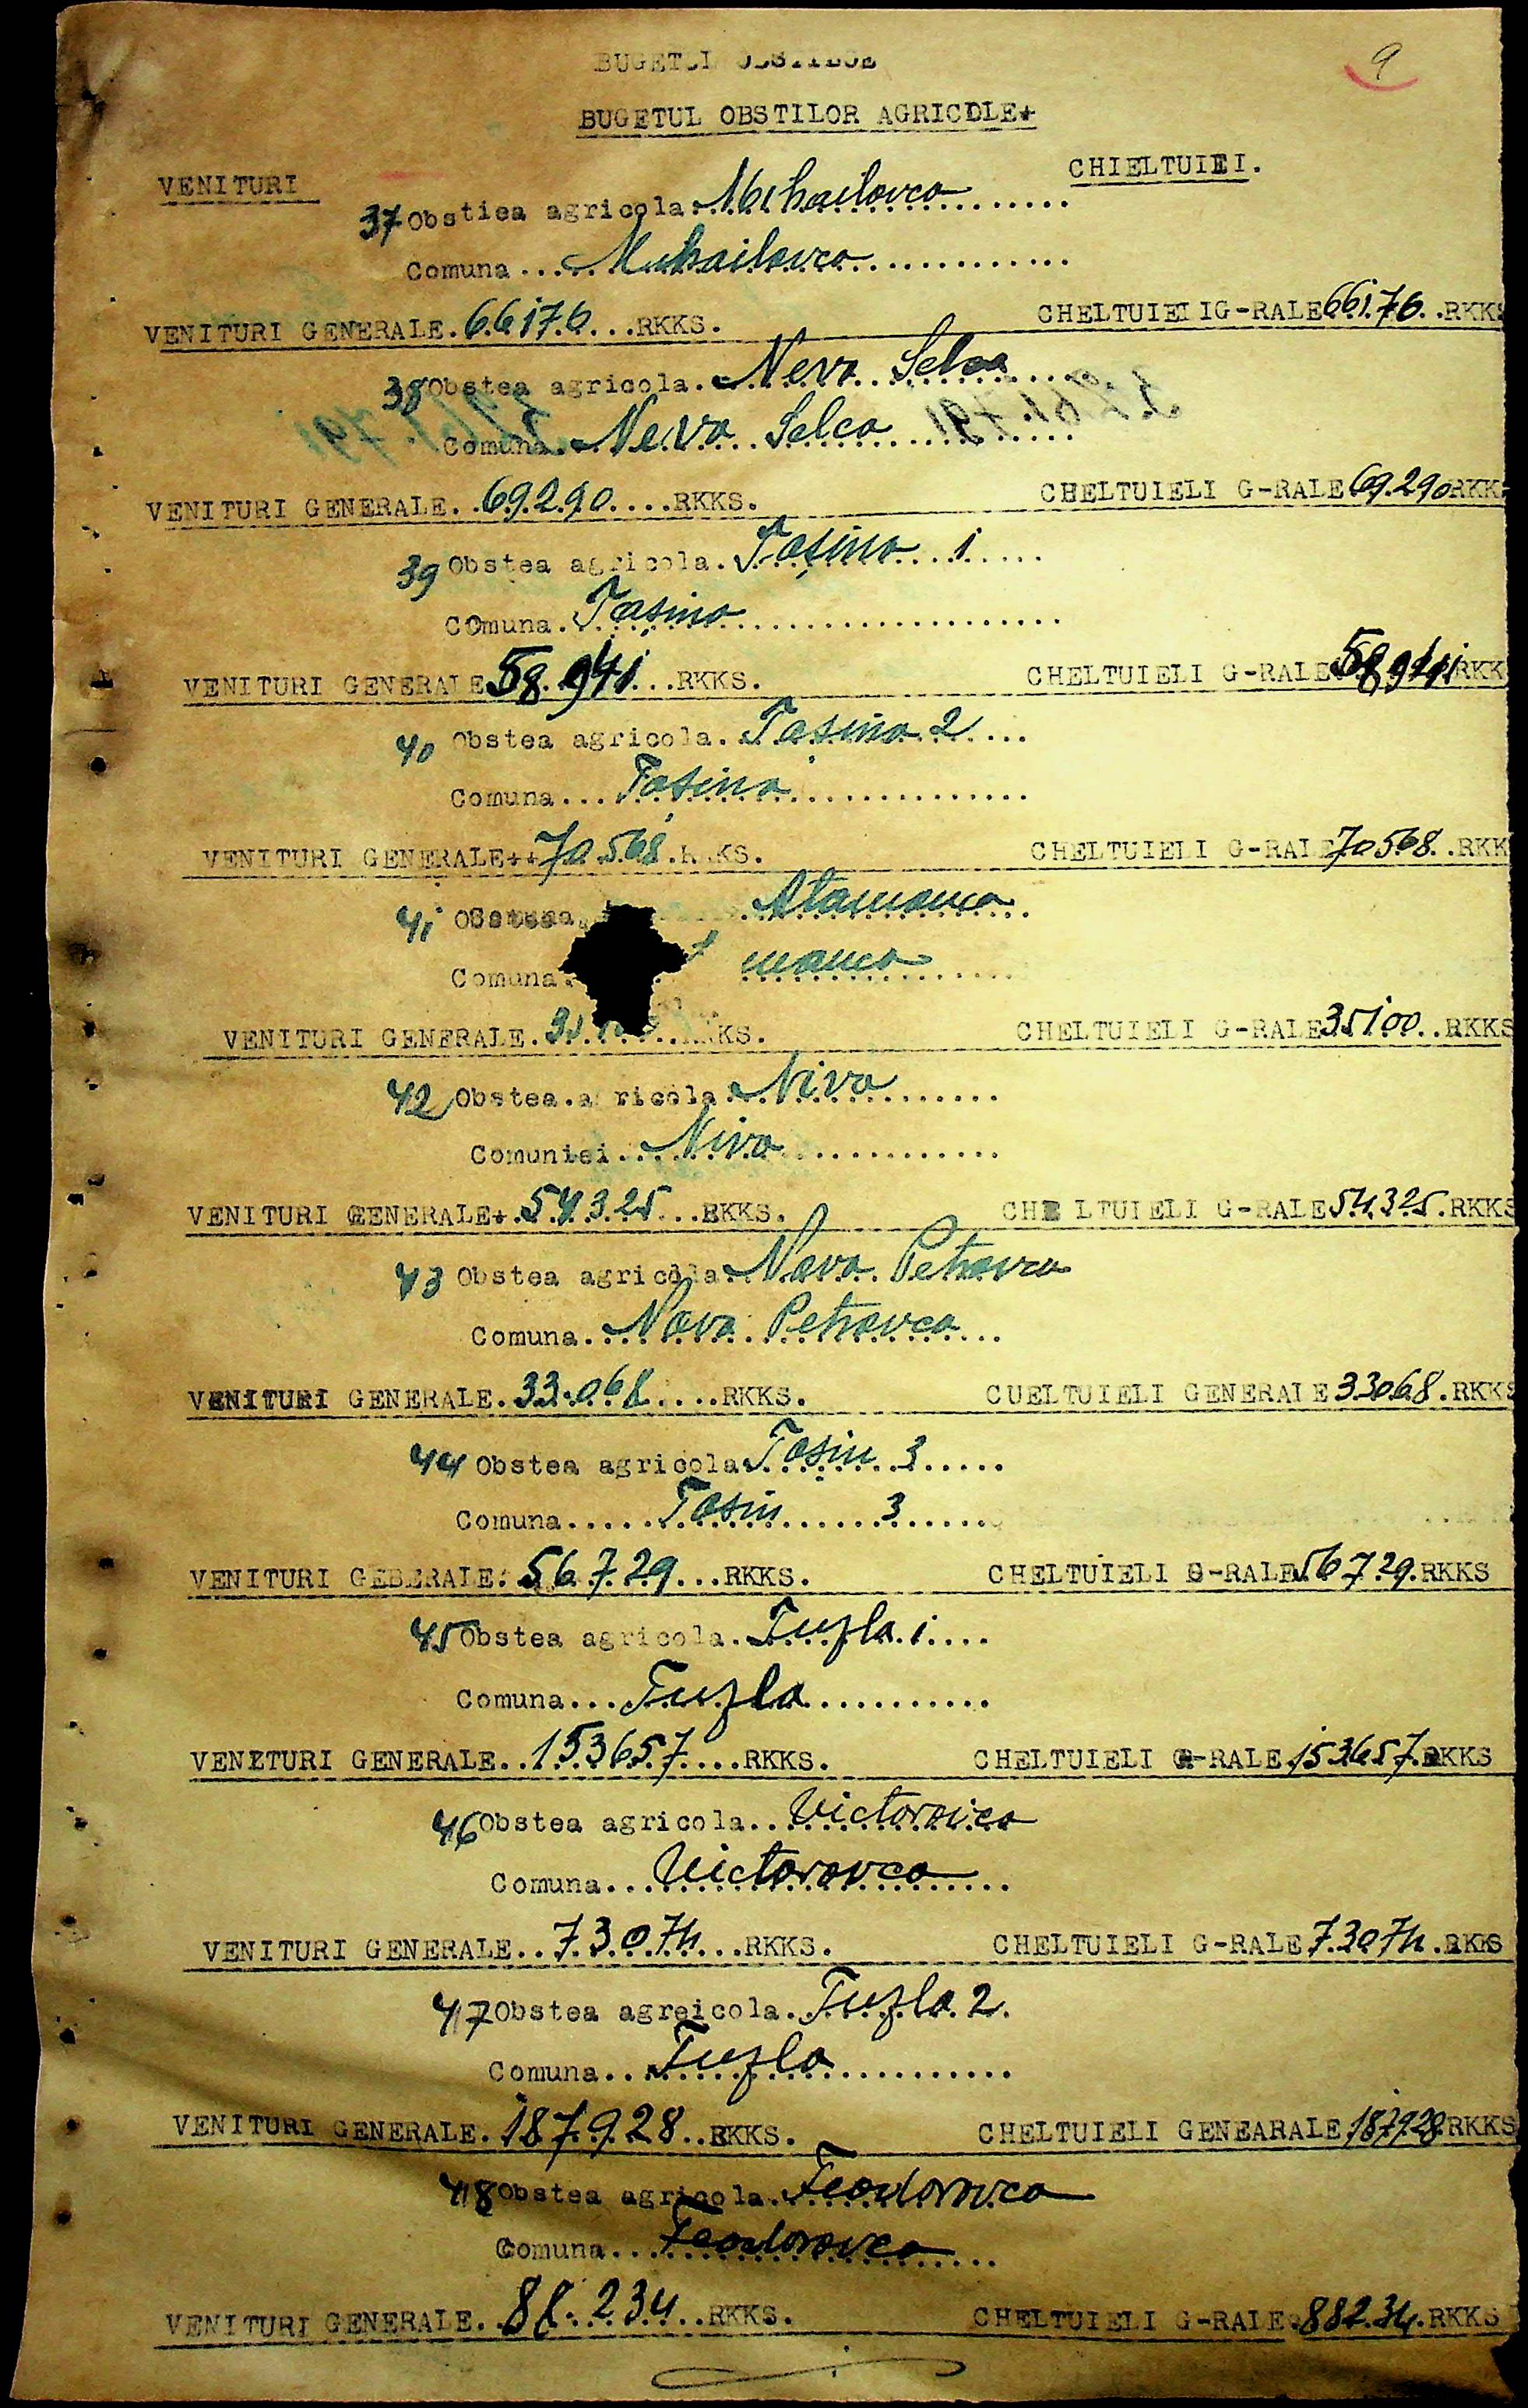 9
BUGETUL OBSTILOR
BUGETUL OBSTILOR AGRICOLE+
VENITURI CHIELTUIEI.
37 Obstiea agricola. Mihailovca
Comuna.... Mihailovca
VENITURI GENERALE. 66176...RKKS. CHELTUIELIG-RALE 66176..RKKS
38 Obstea agricola. Neva Selca
Comuna. Neva Selca
VENITURI GENERALE. .69.290....RKKS. CHELTUIELI G-RALE 69.290 RKK
39 Obstea agricola. Tașino 1
COmuna. Tașino
VENITURI GENERALE 58.941...RKKS. CHELTUIELI G-RALE 58941 RKK
40 Obstea agricola. Tasino 2
Comuna... Tasino
VENITURI GENERALE++ 70.568.RKKS. CHELTUIELI G-RALE 70568..RKK
41 Obstea Atamanca
Comuna. manca
VENITURI GENERALE. KS. CHELTUIELI G-RALE 35100..RKKS
42 Obstea.a ricola. Niva
Comuniei.. Niva
VENITURI GENERALE+. 54325...RKKS. CHE LTUIELI G-RALE 54.325.RKKS
43 Obstea agricola. Nova Petrovca
Comuna. Nova Petrovca
VENITURI GENERALE. 33.068....RKKS. CUELTUIELI GENERALE 33068.RKKS
44 Obstea agricola. Tașin 3
Comuna..... Tasin 3
VENITURI GEBERALE. 56.729...RKKS. CHELTUIELI G-RALE 56729.RKKS
45 Obstea agricola. Tuzla 1
Comuna... Tuzla
VENITURI GENERALE.. 153657....RKKS. CHELTUIELI G-RALE 153657.RKKS
46 Obstea agricola.. Victorovca
Comuna... Victorovca
VENITURI GENERALE.. 73074...RKKS. CHELTUIELI G-RALE 73074.RKKS
47 Obstea agreicola. Tuzla 2.
Comuna... Tuzla
VENITURI GENERALE. 187.928..RKKS. CHELTUIELI GENEARALE 187928.RKKS
48 Obstea agricola. Feodorovca
Comuna... Feodorovca
VENITURI GENERALE. 88.234..RKKS. CHELTUIELI G-RALE. 88234.RKKS